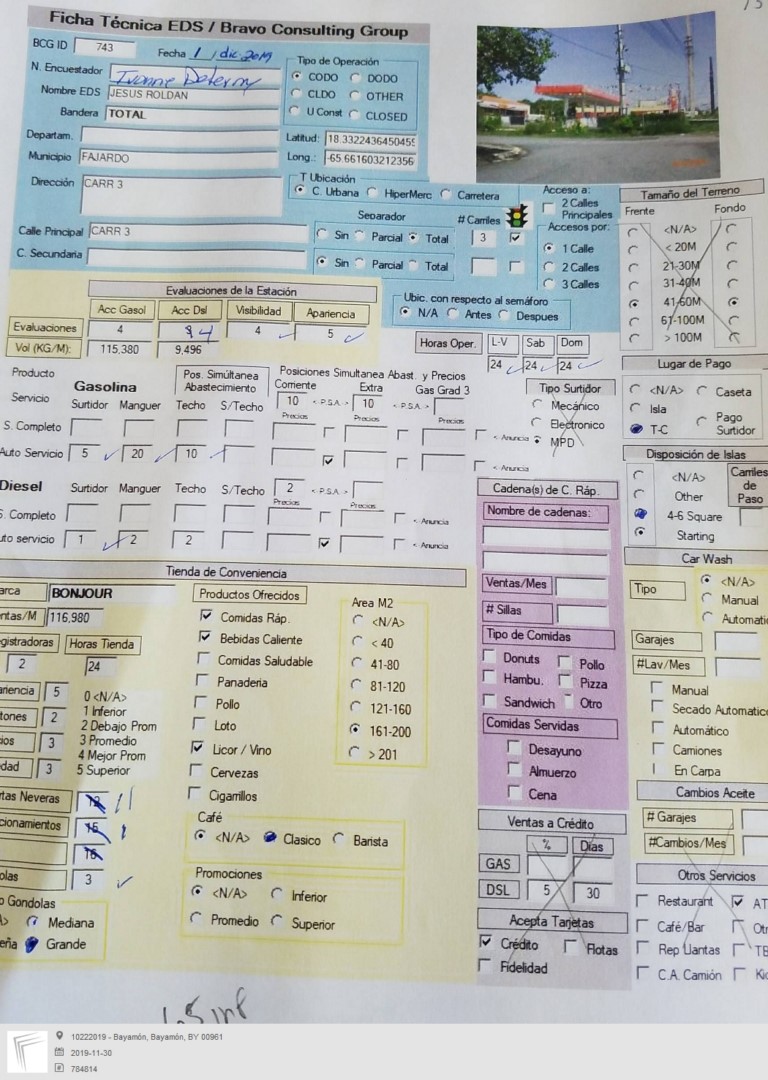 Ficha Técnica EDS / Bravo Consulting Group
BCG ID 743 Fecha 1 / dic 2019
N. Encuestador Ivonne
Nombre EDS JESUS ROLDAN
Bandera TOTAL
Tipo de Operación
CODO DODO
CLDO OTHER
U Const CLOSED
Departam.
Municipio FAJARDO
Latitud: 18.3322436450455
Long.: -65.661603212356
Dirección CARR 3
T Ubicación
C. Urbana HiperMerc Carretera
Calle Principal CARR 3
C. Secundaria
Separador # Carriles
Sin Parcial Total 3
Sin Parcial Total
Acceso a:
2 Calles Principales
Accesos por:
1 Calle
2 Calles
3 Calles
Tamaño del Terreno
Frente Fondo
<N/A>
< 20M
21-30M
31-40M
41-60M
61-100M
> 100M
Evaluaciones de la Estación
Acc Gasol Acc Dsl Visibilidad Apariencia
Evaluaciones 4 4 4 5
Vol (KG/M): 115,380 9,496
Ubic. con respecto al semáforo
N/A Antes Despues
Horas Oper. L-V Sab Dom
24 24 24
Producto
Servicio
Gasolina
Pos. Simúltánea Abastecimiento
Posiciones Simultanea Abast. y Precios
Surtidor Manguer Techo S/Techo
Corriente Extra Gas Grad 3
10 <-P.S.A.-> 10 <-P.S.A.->
Precios Precios Precios
S. Completo <-Anuncia
Auto Servicio 5 20 10 <-Anuncia
Tipo Surtidor
Mecánico
Electronico
MPD
Lugar de Pago
<N/A> Caseta
Isla Pago Surtidor
T-C
Diesel Surtidor Manguer Techo S/Techo 2 <-P.S.A.->
Precios Precios
S. Completo <-Anuncia
uto servicio 1 2 2 <-Anuncia
Disposición de Islas
<N/A>
Other
4-6 Square
Starting
Carriles de Paso
Tienda de Conveniencia
arca BONJOUR
ntas/M 116,980
gistradoras Horas Tienda
2 24
ariencia 5
tones 2
ios 3
dad 3
0 <N/A>
1 Inferior
2 Debajo Prom
3 Promedio
4 Mejor Prom
5 Superior
tas Neveras 11
cionamientos 15
olas 3
o Gondolas
A> Mediana
eña Grande
Productos Ofrecidos
Comidas Ráp.
Bebidas Caliente
Comidas Saludable
Panaderia
Pollo
Loto
Licor / Vino
Cervezas
Cigarrillos
Area M2
<N/A>
< 40
41-80
81-120
121-160
161-200
> 201
Café
<N/A> Clasico Barista
Promociones
<N/A> Inferior
Promedio Superior
Cadena(s) de C. Ráp.
Nombre de cadenas:
Ventas/Mes
# Sillas
Tipo de Comidas
Donuts Pollo
Hambu. Pizza
Sandwich Otro
Comidas Servidas
Desayuno
Almuerzo
Cena
Ventas a Crédito
% Días
GAS
DSL 5 30
Acepta Tarjetas
Crédito Flotas
Fidelidad
Car Wash
Tipo <N/A>
Manual
Automatic
Garajes
#Lav/Mes
Manual
Secado Automatico
Automático
Camiones
En Carpa
Cambios Aceite
# Garajes
#Cambios/Mes
Otros Servicios
Restaurant AT
Café/Bar Otr
Rep Llantas TB
C.A. Camión Kio
10222019 - Bayamón, Bayamón, BY 00961
2019-11-30
784814